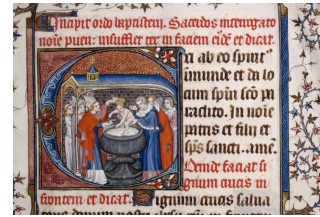 Incipit ordo baptisterii. Sacerdos interrogato
noīe pueri: insufflet ter in faciem eius et dicat.
xi ab eo spūs
inmunde et da lo
cum spūi scō pa
raclito. In noīe
patris et filij et
sp̄s sancti. amē.
Deinde faciat si
gnum crucis in
frontem et dicat. Signum crucis salua